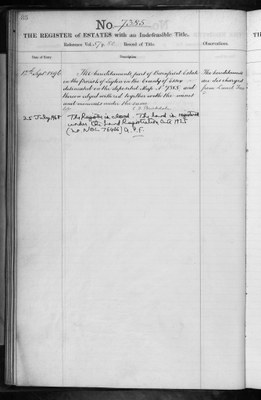 No 7385
THE REGISTER of ESTATES with an Indefeasible Title.
Reference Vol. Record of Title
Observations.
Date of Entry
Description
17th Sept 1896
The hereditaments part of Estate
in the parish of Leyton in the County of Essex
delineated on the deposited Map No 7385 and
thereon edged red together with the mines
and minerals under the same
The hereditaments
are discharged
from Land Tax
25 July 1968
The Register is closed The land is registered
under the Land Registration Act 1925